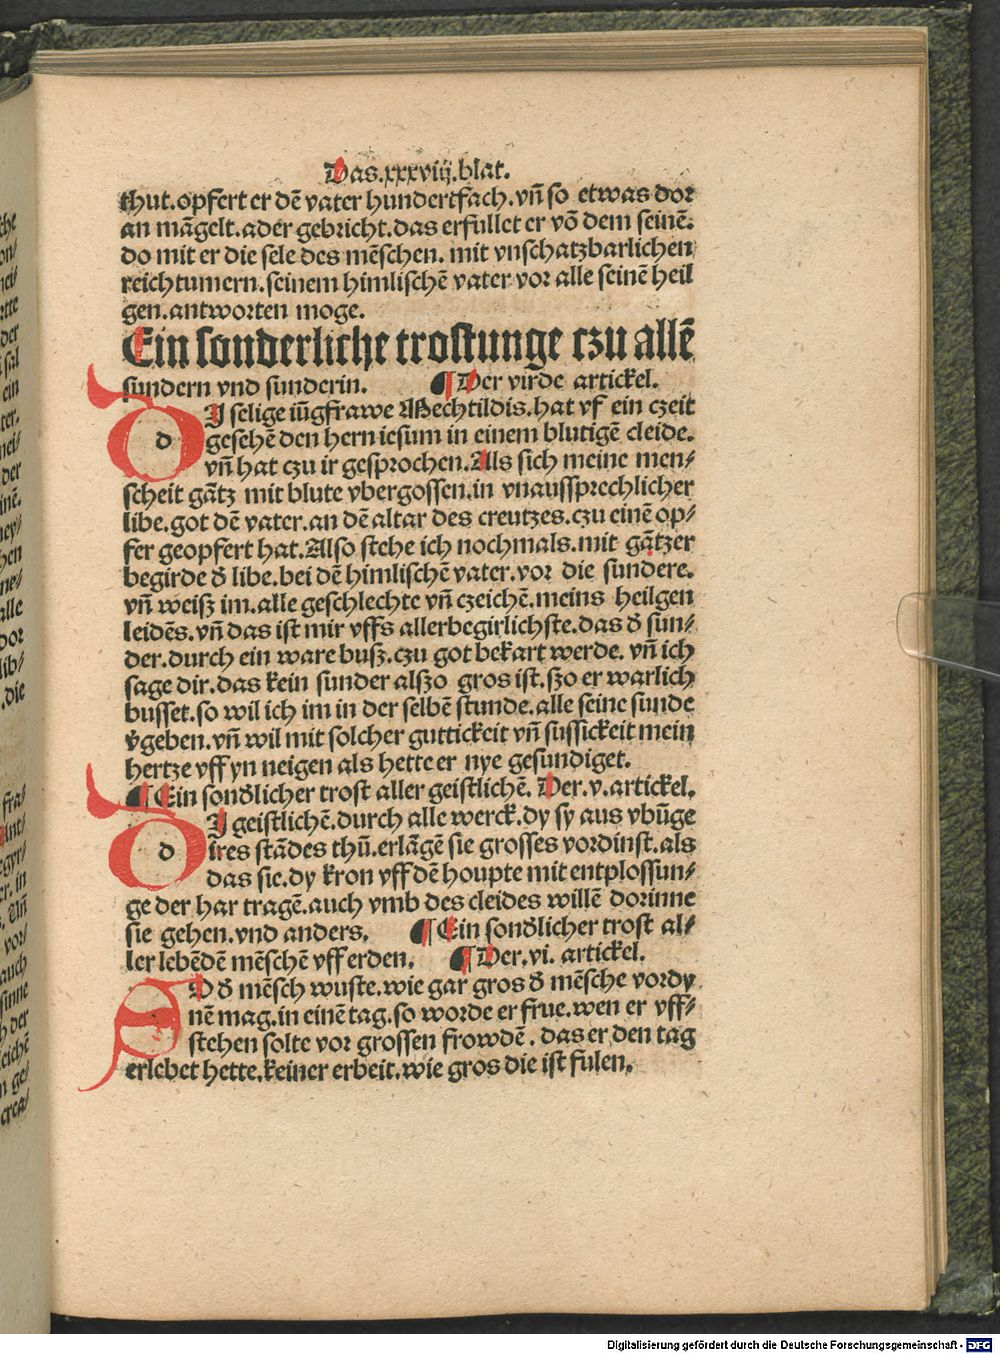 Das.xxxviij.blat.
thut.opfert er dē vater hundertfach.vn̄ so etwas dor
an māgelt.ader gebricht.das erfullet er vō dem seinē.
do mit er die sele des mēschen. mit vnschatzbarlichen
reichtumern.seinem himlischē vater vor alle seinē heil
gen.antworten moge.
Ein sonderliche trostunge czu allē
sundern vnd sunderin. ¶ Der virde artickel.
DI selige iūgfrawe Mechtildis.hat vf ein czeit
gesehē den hern iesum in einem blutigē cleide.
vn̄ hat czu ir gesprochen.Als sich meine men⸗
scheit gātz mit blute vbergossen.in vnaussprechlicher
libe.got dē vater.an dē altar des creutzes.czu einē op⸗
fer geopfert hat.Also stehe ich nochmals.mit gātzer
begirde d̄ libe.bei dē himlischē vater.vor die sundere.
vn̄ weisz im.alle geschlechte vn̄ czeichē.meins heilgen
leidēs.vn̄ das ist mir vffs allerbegirlichste.das d̄ sun⸗
der.durch ein ware busz.czu got bekart werde. vn̄ ich
sage dir.das kein sunder alszo gros ist.szo er warlich
busset.so wil ich im in der selbē stunde.alle seine sunde
v̄geben.vn̄ wil mit solcher guttickeit vn̄ sussickeit mein
hertze vff yn neigen als hette er nye gesundiget.
¶ Ein sond̄licher trost aller geistlichē. Der.v.artickel.
DI geistlichē.durch alle werck.dy sy aus vbūge
ires stādes thū.erlāgē sie grosses vordinst.als
das sie.dy kron vff dē houpte mit entplossun⸗
ge der har tragē.auch vmb des cleides willē dorinne
sie gehen.vnd anders. ¶ Ein sond̄licher trost al⸗
ler lebēdē mēschē vff erden. ¶ Der.vi. artickel.
SO d̄ mēsch wuste.wie gar gros d̄ mēsche vordy
nē mag.in einē tag.so worde er frue.wen er vff⸗
stehen solte vor grossen frowdē. das er den tag
erlebet hette.keiner erbeit.wie gros die ist fulen.
Digitalisierung gefördert durch die Deutsche Forschungsgemeinschaft - DFG